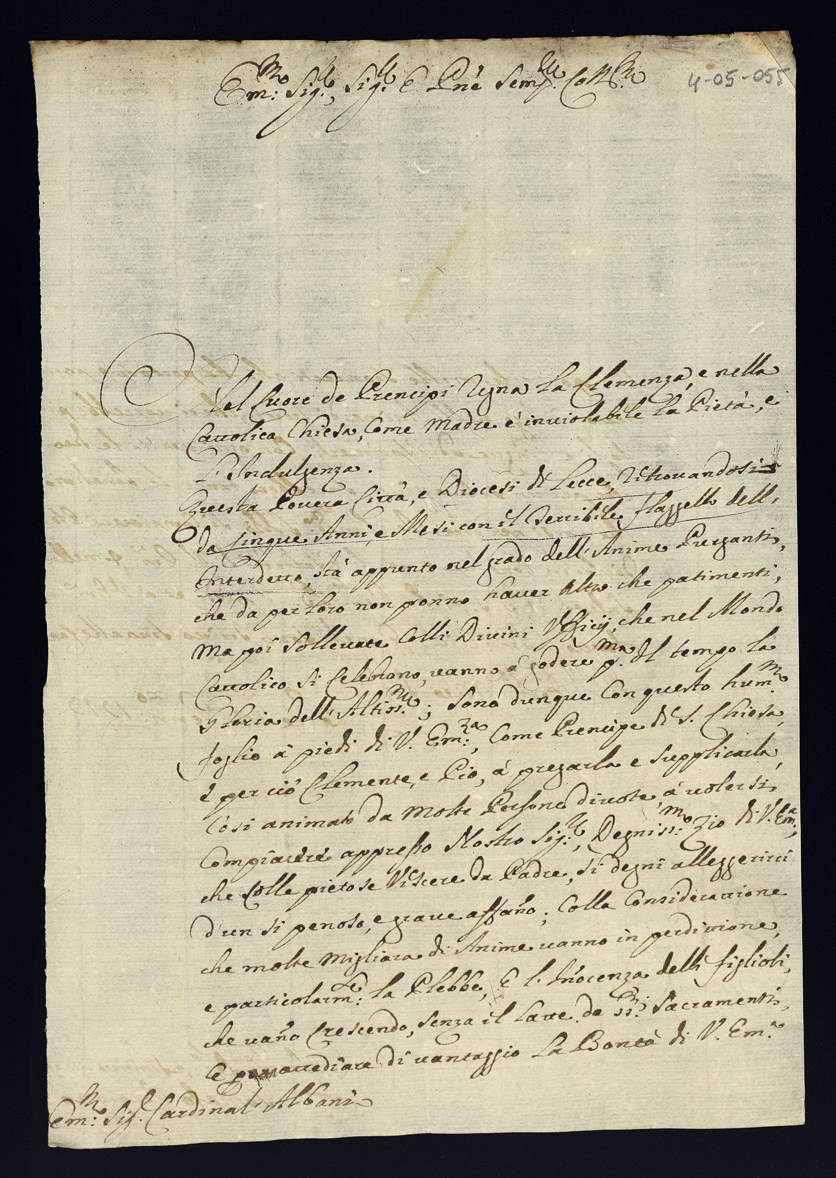 Em:mo Sig.r, Sig.r e Pñe Semp.e Coll.mo
4-05-055
Nel Cuore de Prencipi regna la Clemenza, e nella
Cattolica Chiesa, Come Madre è inviolabile la Pietà, e
L'Indulgenza.
Questa Povera Città, e Diocesi di Lecce, ritrovandosi
da Cinque Anni, e Mesi con il Terribile flagello dell'
Interdetto, stà appunto nel grado dell'Anime Purganti,
che da per loro non ponno haver altro che patimenti,
ma poi sollevate Colli Divini Ufficij, che nel Mondo
Cattolico si Celebrano, vanno à godere p.ma il tempo la
Gloria dell'Altiss.mo; sono dunque con questo hum:mo
foglio à piedi di V. Em:za, Come Prencipe di S. Chiesa,
è perciò Clemente, e Pio, à pregarla e supplicarla,
Così animato da molte Persone divote à volersi
Compiacere appresso Nostro Sig.re, Degniss:mo Zio di V. Em:a,
che colle pietose Viscere da Padre, si degni alleggerirci
d'un sì penoso, e grave affaño; Colla Consideratione
che molte migliara di Anime vanno in perditione,
e particolarm:te la Plebbe, E l'Inocenza delli figlioli,
che vaño Crescendo, senza il latte de SS:mi Sacramenti,
Et di vantaggio La Bontà di V. Em.a
Em:mo Sig.r Cardinal Albani